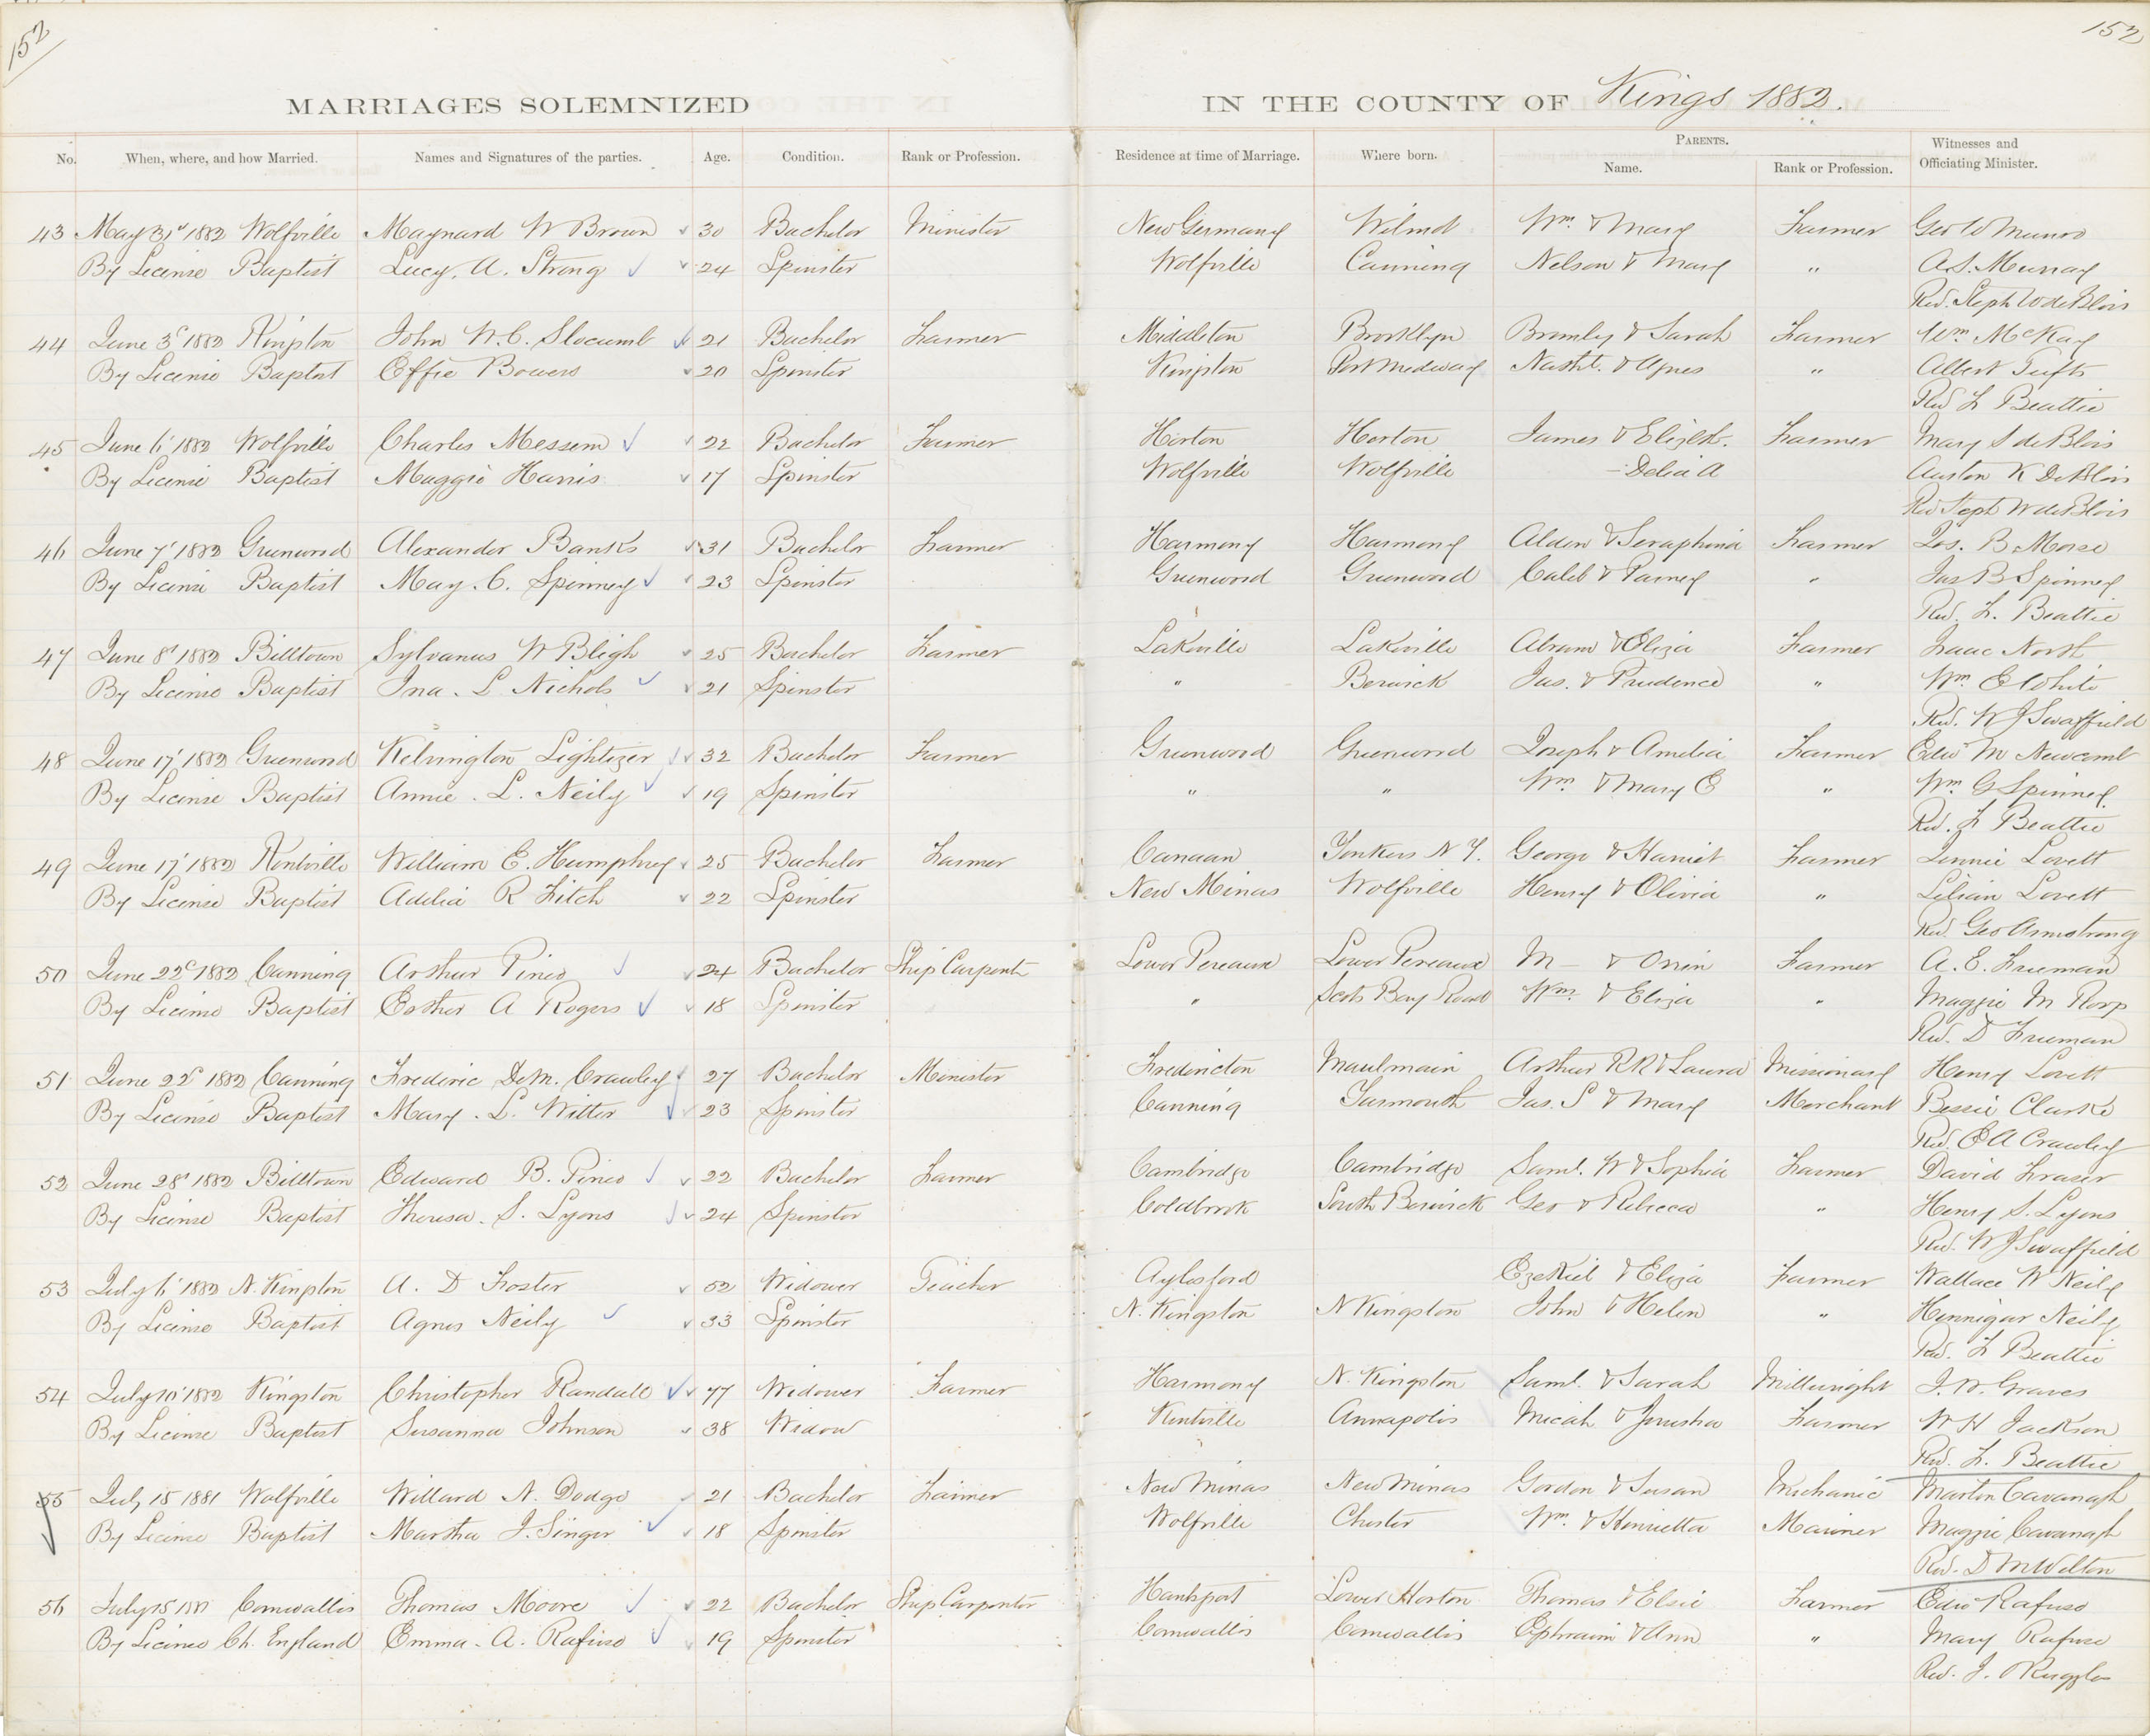 152
152
MARRIAGES SOLEMNIZED IN THE COUNTY OF Kings 1882.
No. When, where, and how Married. Names and Signatures of the parties. Age. Condition. Rank or Profession. Residence at time of Marriage. Where born. PARENTS. Name. Rank or Profession. Witnesses and Officiating Minister.
43 May 31st 1882 Wolfville Maynard W Brown 30 Bachelor Minister New Germany Wilmot Wm. & Mary Farmer Geo W Munro
By License Baptist Lucy. A. Strong 24 Spinster Wolfville Canning Nelson & Mary " A.S. Murray
Rev. Steph W deBlois
44 June 3d 1882 Kingston John W.C. Slocumb 21 Bachelor Farmer Middleton Brooklyn Bromly & Sarah Farmer Wm McKay
By License Baptist Effie Bowers 20 Spinster Kingston Port Medway Nathl. & Agnes " Albert Tufts
Rev L Beattie
45 June 6' 1882 Wolfville Charles Messem 22 Bachelor Farmer Horton Horton James & Elizbt. Farmer Mary S deBlois
By License Baptist Maggie Harris 17 Spinster Wolfville Wolfville - Delia A Austen K DeBlois
Rev Steph W deBlois
46 June 7' 1882 Greenwood Alexander Banks 31 Bachelor Farmer Harmony Harmony Alden & Seraphina Farmer Jos. B Morse
By License Baptist May. C. Spinney 23 Spinster Greenwood Greenwood Caleb & Parney " Jas B Spinney
Rev. L. Beattie
47 June 8' 1882 Billtown Sylvanus W Bligh 25 Bachelor Farmer Lakeville Lakeville Abram & Eliza Farmer Isaac North
By License Baptist Ina. L Nichols 21 Spinster " Berwick Jas. & Prudence " Wm. E White
Rev. W J Swaffield
48 June 17' 1882 Greenwood Kelvington Lightizer 32 Bachelor Farmer Greenwood Greenwood Joseph & Amelia Farmer Edw M Newcomb
By License Baptist Annie. L. Neily 19 Spinster " " Wm. & Mary E " Wm. G Spinney.
Rev. L Beattie
49 June 17' 1882 Kentville William E. Humphrey 25 Bachelor Farmer Canaan Yonkers N Y. George & Harriet Farmer Jennie Lovett
By License Baptist Adelia R Fitch 22 Spinster New Minas Wolfville Henry & Olivia " Lilian Lovett
Rev Geo Armstrong
50 June 22d 1882 Canning Arthur Pineo 24 Bachelor Ship Carpentr Lower Pereaux Lower Pereaux M— & Orrin Farmer A. E. Freeman
By License Baptist Esther A Rogers 18 Spinster " Scots Bay Road Wm. & Eliza " Maggie M
Rev. D Freeman
51 June 22d 1882 Canning Frederic DeM. Crawley 27 Bachelor Minister Fredericton Maulmain Arthur RR & Laura Missionary Henry Lovett
By License Baptist Mary. L. Witter 23 Spinster Canning Yarmouth Jas. S & Mary Merchant Bessie Clarke
Rev. E A Crawley
52 June 28' 1882 Billtown Edward B. Pineo 22 Bachelor Farmer Cambridge Cambridge Saml. W & Sophia Farmer David Fraser
By License Baptist Theresa. S. Lyons 24 Spinster Coldbrook South Berwick Geo & Rebecca " Henry S. Lyons
Rev. W J Swaffield
53 July 6' 1882 N. Kingston A. D Foster 52 Widower Teacher Aylesford Ezekiel & Eliza Farmer Wallace W Neily
By License Baptist Agnes Neily 33 Spinster N. Kingston N Kingston John & Helen " Hennigar Neily
Rev. L Beattie
54 July 10' 1882 Kingston Christopher Randall 77 Widower Farmer Harmony N. Kingston Saml. & Sarah Millwright J. W. Graves
By License Baptist Susanna Johnson 38 Widow Kentville Annapolis Micah & Jerusha Farmer W H Jackson
Rev. L. Beattie
55 July 15 1881 Wolfville Willard N. Dodge 21 Bachelor Farmer New Minas New Minas Gordon & Susan Mechanic Marton Cavanagh
By License Baptist Martha J. Singer 18 Spinster Wolfville Chester Wm. & Henrietta Mariner Maggie Cavanagh
Rev. D M Welton
56 July 15 1881 Cornwallis Thomas Moore 22 Bachelor Ship Carpenter Hantsport Lower Horton Thomas & Elsie Farmer Edw Rafuse
By License Ch. England Emma. A. Rafuse 19 Spinster Cornwallis Cornwallis Ephraim & Ann " Mary Rafuse
Rev. J. Ruggles